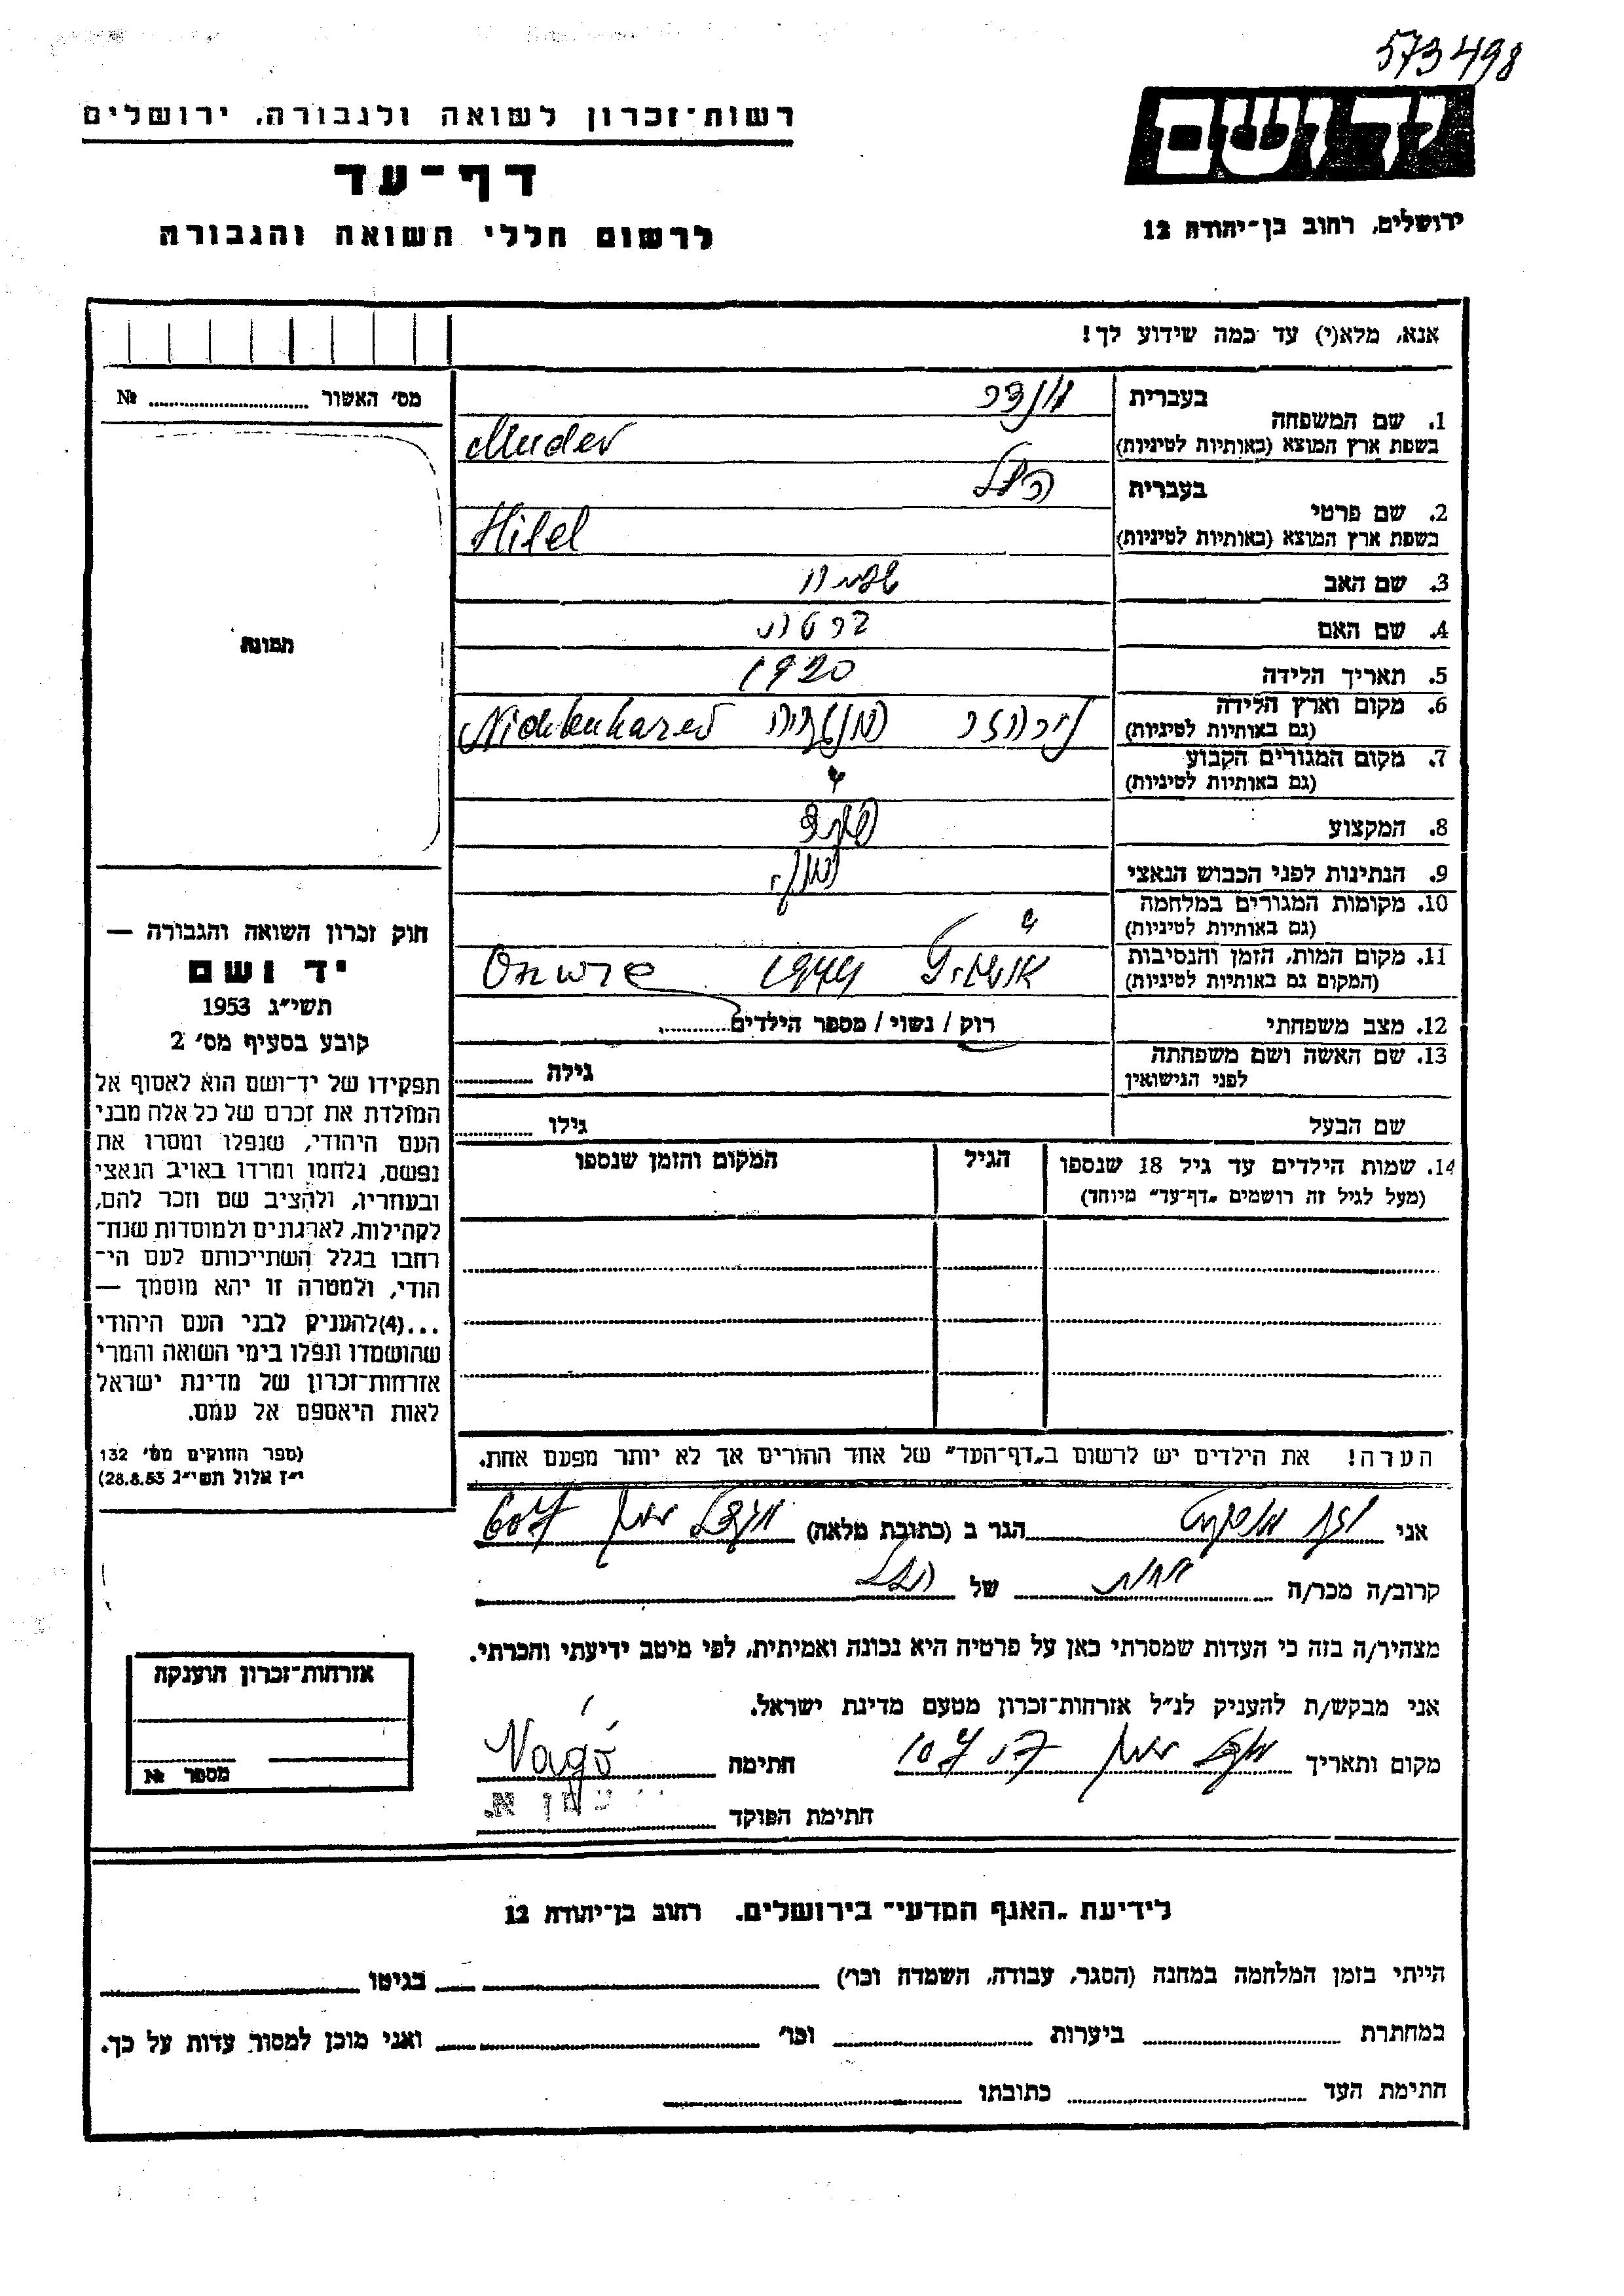 573498
רשות־זכרון לשואה ולגבורה. ירושלים
יד ושם
דף־עד
לרשום חללי השואה והגבורה
ירושלים, רחוב בן־יהודה 12
אנא, מלא(י) עד כמה שידוע לך!
מס׳ האשור №
בעברית
1. שם המשפחה
בשפת ארץ המוצא (באותיות לטיניות)
בעברית הלל
2. שם פרטי
בשפת ארץ המוצא (באותיות לטיניות) Hilel
3. שם האב
4. שם האם
תמונה
5. תאריך הלידה 1920
6. מקום וארץ הלידה
(גם באותיות לטיניות)
7. מקום המגורים הקבוע
(גם באותיות לטיניות)
8. המקצוע
9. הנתינות לפני הכבוש הנאצי
10. מקומות המגורים במלחמה
(גם באותיות לטיניות)
11. מקום המות, הזמן והנסיבות 1944
(המקום גם באותיות לטיניות)
12. מצב משפחתי רוק / נשוי / מספר הילדים
13. שם האשה ושם משפחתה גילה
לפני הנישואין
שם הבעל גילו
חוק זכרון השואה והגבורה —
יד ושם
תשי״ג 1953
קובע בסעיף מס׳ 2
תפקידו של יד־ושם הוא לאסוף אל
המולדת את זכרם של כל אלה מבני
העם היהודי, שנפלו ומסרו את
נפשם, נלחמו ומרדו באויב הנאצי
ובעוזריו, ולהציב שם וזכר להם,
לקהילות, לארגונים ולמוסדות שנח־
רחבו בגלל השתייכותם לעם הי־
הודי, ולמטרה זו יהא מוסמך —
...(4)להעניק לבני העם היהודי
שהושמדו ונפלו בימי השואה והמרי
אזרחות־זכרון של מדינת ישראל
לאות היאספם אל עמם.
(ספר החוקים מס׳ 132
י״ז אלול תשי״ג 28.8.53)
14. שמות הילדים עד גיל 18 שנספו הגיל המקום והזמן שנספו
(מעל לגיל זה רושמים „דף־עד״ מיוחד)
הערה! את הילדים יש לרשום ב„דף־העד״ של אחד ההורים אך לא יותר מפעם אחת.
אני הגר ב (כתובת מלאה)
קרוב/ה מכר/ה של הלל
מצהיר/ה בזה כי העדות שמסרתי כאן על פרטיה היא נכונה ואמיתית, לפי מיטב ידיעתי והכרתי.
אני מבקש/ת להעניק לנ״ל אזרחות־זכרון מטעם מדינת ישראל.
מקום ותאריך חתימה Vagó
חתימת הפוקד
אזרחות־זכרון הוענקה
מספר №
לידיעת „האגף המדעי״ בירושלים. רחוב בן־יהודה 12
הייתי בזמן המלחמה במחנה (הסגר, עבודה, השמדה וכו׳) בגיטו
במחתרת ביערות וכו׳ ואני מוכן למסור עדות על כך.
חתימת העד כתובתו